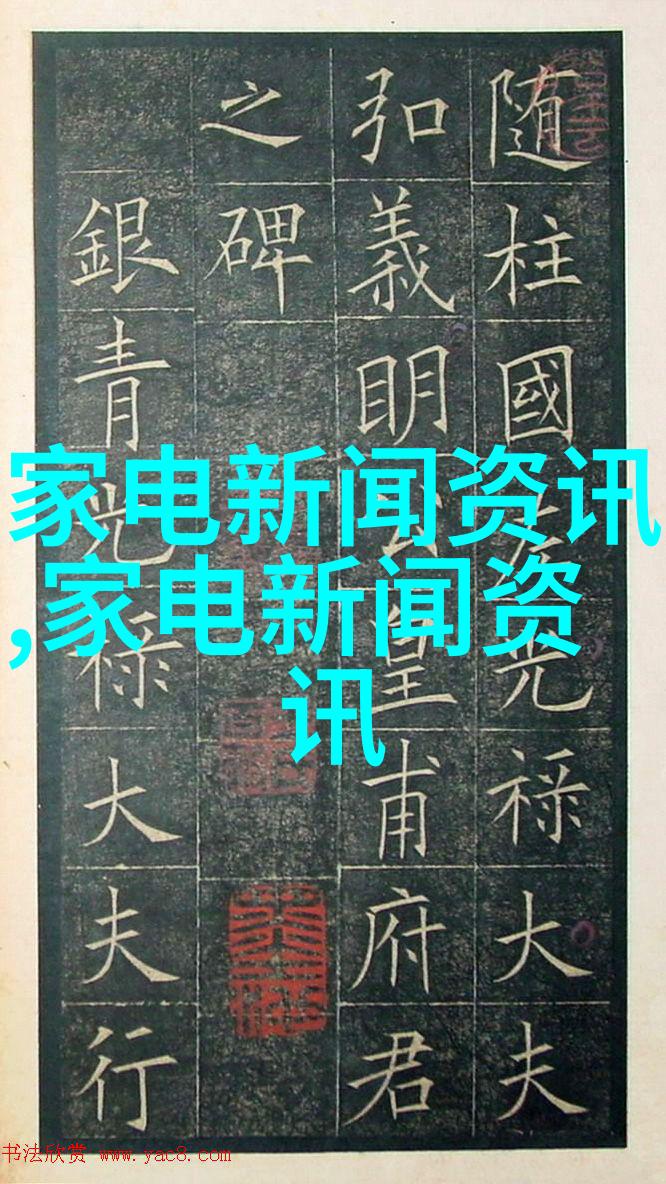 随柱國左光禄大夫
弘義明公皇甫府君
之碑
銀青光禄大夫行
家电新闻资讯
,家电新闻资
讯
书法欣赏 www.yac8.com